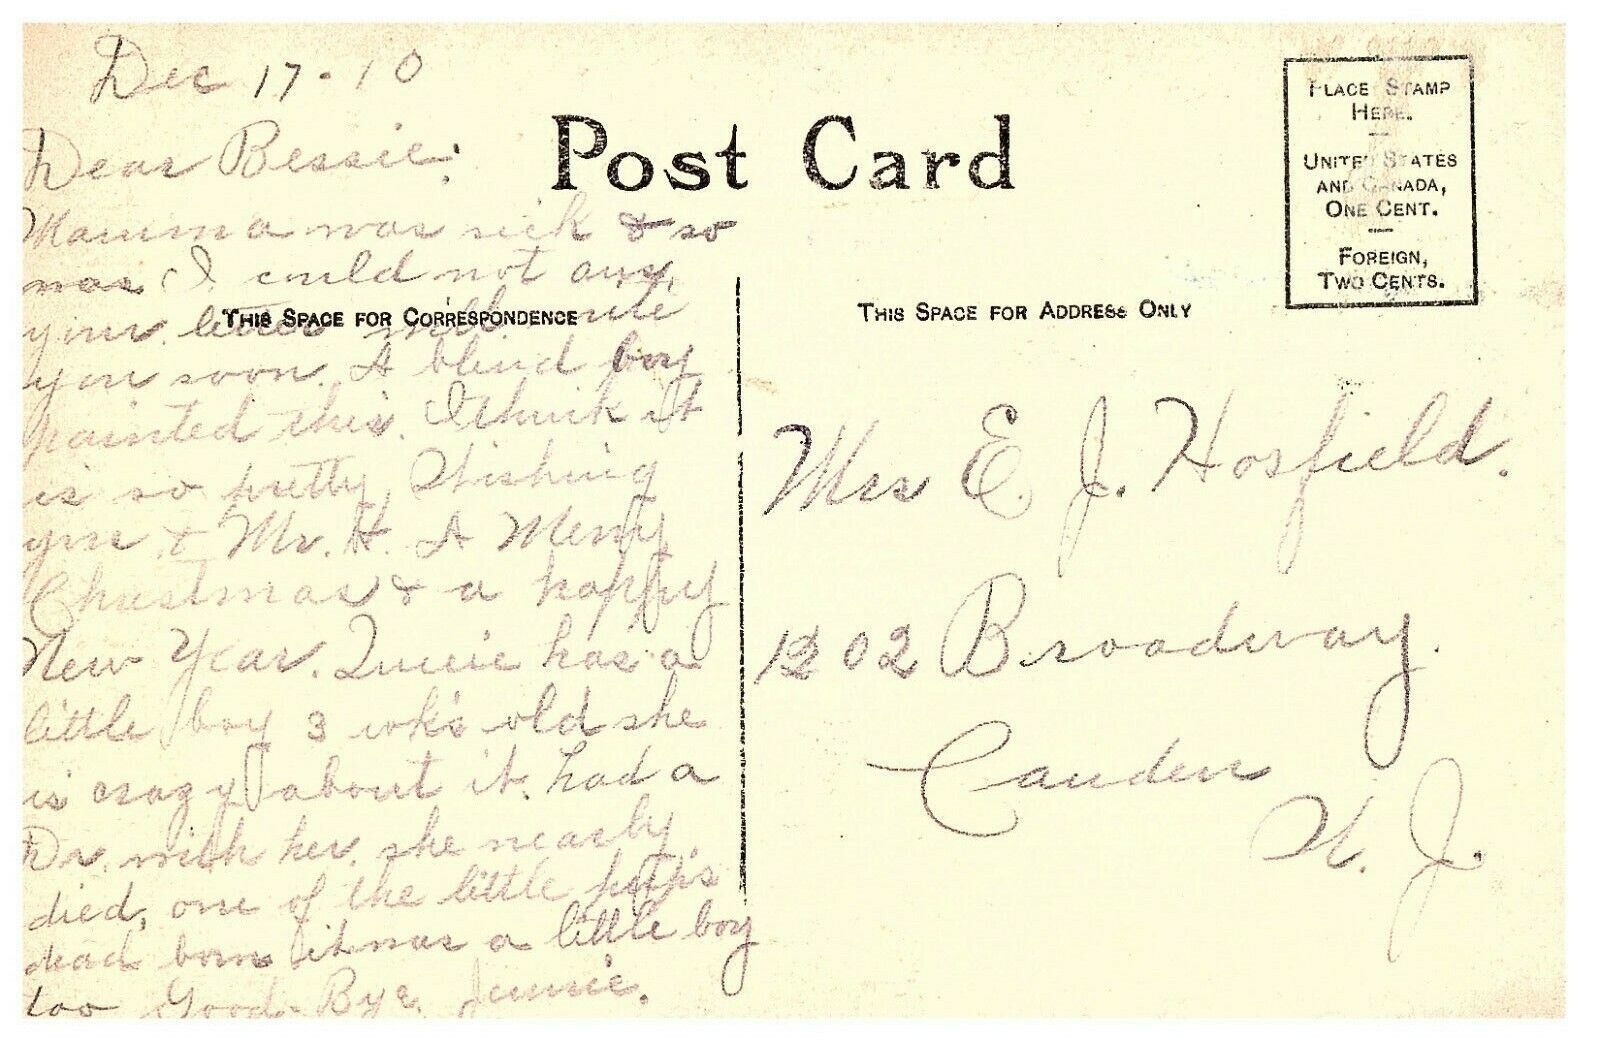 Dec 17-10
Dear Bessie:
Mamma was sick & so
was I could not ans.
your letter will write
you soon. A blind boy
painted this. I think it
is so pretty, Wishing
you & Mr. H. A Merry
Christmas & a happy
New Year. Queenie has a
little boy 3 wk's old she
is crazy about it. had a
Dr. with her. she nearly
died, one of the little pup's
dead born it was a little boy
too Good-Bye. Jennie.
Post Card
THIS SPACE FOR CORRESPONDENCE
THIS SPACE FOR ADDRESS ONLY
PLACE STAMP
HERE.
UNITED STATES
AND CANADA,
ONE CENT.
FOREIGN,
TWO CENTS.
Mrs E. J. Hosfield.
1202 Broadway.
Camden
N. J.